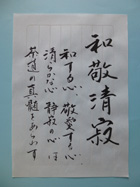 和敬清寂
和する心、敬愛する心、
清らかな心、静寂の心は
茶道の真髄をあらわす